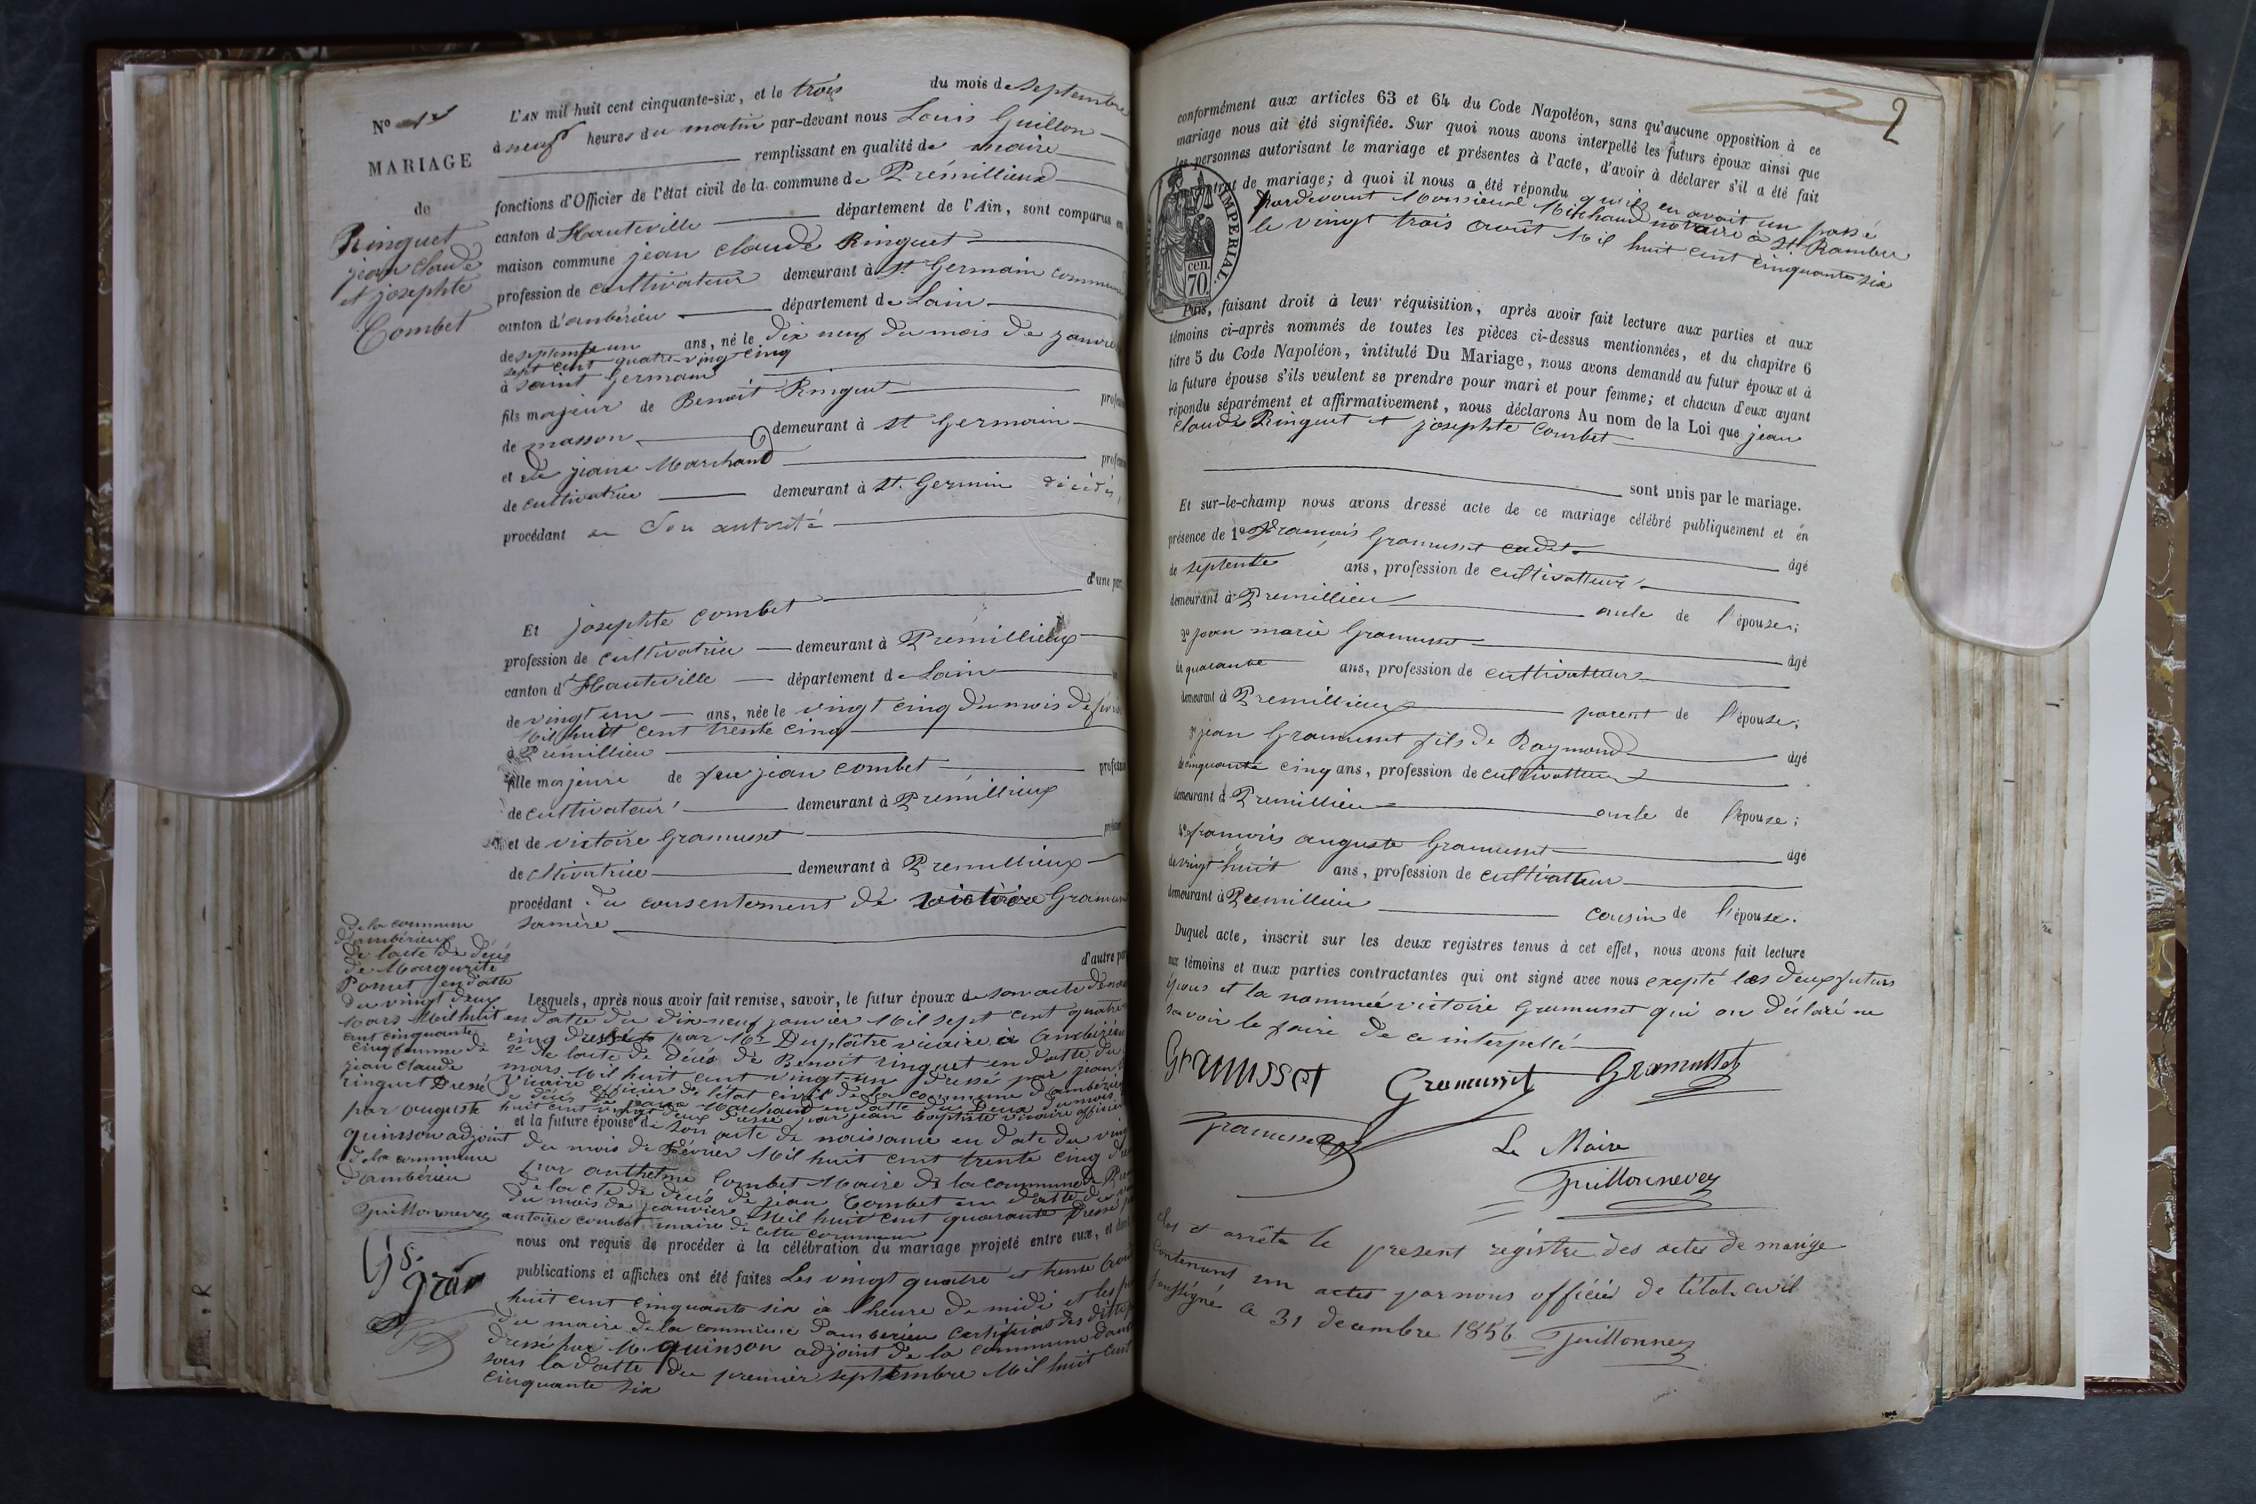 No 1er
MARIAGE
de
Ringuet
jean claude
et josephte
Combet
L'AN mil huit cent cinquante-six, et le trois du mois de septembre
à neuf heures du matin par-devant nous Louis Guillon
remplissant en qualité de maire
fonctions d'Officier de l'état civil de la commune de Prémillieux
canton d'Hauteville département de l'Ain, sont comparus en
maison commune jean claude Ringuet
profession de cultivateur demeurant à St Germain commune
canton d'ambérieu département de Lain
de septente un ans, né le dix neuf du mois de janvier
sept cent quatre-vingt cinq
à saint Germain
fils majeur de Benoit Ringuet
de masson demeurant à st Germain
et de jeane Marchand
de cultivatrice demeurant à St. Germin décédés,
procédant en son autorité
d'une part
Et josephte combet
profession de cultivatrice demeurant à Prémillieux
canton d'Hauteville département de Lain
de vingt un ans, née le vingt cinq du mois de février
Mil huit cent trente cinq
à Prémillieu
fille majeure de feu jean combet
de cultivateur demeurant à Prémillieux
et de victoire Gramusset
de cltivatrice demeurant à Premillieux
procédant du consentement de victoire Gramusset
samère
d'autre part
Lesquels, après nous avoir fait remise, savoir, le futur époux de son acte de
en datte du dix-neuf janvier Mil sept cent quatre
cinq dressé par Mr Duplâtre vicaire à Ambérieu
2e de lacte de décés de Benoit ringuet en datte du
mars Mil huit cent vingt-un dressé par jean
Vicaire officier de l'état civil de la commune d'ambérieu
de décés de jeane Marchand en datte du Deux du mois
huit cent vingt deux dressé par jean baptiste vicaire officier
et la future épouse de son acte de naissance en date du vingt
du mois de Février Mil huit cent trente cinq
par anthelme Combet Maire de la commune de
de lacte de décés de jean Combet en datte du
du mois de janvier Mil huit cent quarante Dressé
antoine combet maire de cette commune
nous ont requis de procéder à la célébration du mariage projeté entre eux, et dont
publications et affiches ont été faites Les vingt quatre et trente
huit cent cinquante six à l'heure de midi et les
du maire de la commune d'ambérieu certificat des dittes
dressé par M. quinson adjoint de la commune
sous la datte du premier septembre Mil huit cent
cinquante six
de la commune
d'ambérieux
De lacte de décés
de Marguerite
Pomet en datte
du vingt deux
Mars Mil huit
cent cinquante
cinq femme de
jean claude
ringuet Dressé
par auguste
quinson adjoint
de la commune
d'ambérieu
Guillonnevey
Gs.
gram
2
conformément aux articles 63 et 64 du Code Napoléon, sans qu'aucune opposition à ce
mariage nous ait été signifiée. Sur quoi nous avons interpellé les futurs époux ainsi que
les personnes autorisant le mariage et présentes à l'acte, d'avoir à déclarer s'il a été fait
contrat de mariage; à quoi il nous a été répondu qu'il en avait un passé
Pardevant Monsieur Michaud notaire à St. Rambert
le vingt trois août Mil huit cent cinquante six
IMPERIAL
70 cen.
Puis, faisant droit à leur réquisition, après avoir fait lecture aux parties et aux
témoins ci-après nommés de toutes les pièces ci-dessus mentionnées, et du chapitre 6
titre 5 du Code Napoléon, intitulé Du Mariage, nous avons demandé au futur époux et à
la future épouse s'ils veulent se prendre pour mari et pour femme; et chacun d'eux ayant
répondu séparément et affirmativement, nous déclarons Au nom de la Loi que jean
claude Ringuet et josephte combet
sont unis par le mariage.
Et sur-le-champ nous avons dressé acte de ce mariage célébré publiquement et en
présence de 1° François Gramusset cadet âgé
de septente ans, profession de cultivatteur
demeurant à Premillieu oncle de l'épouse;
2° jean marie Gramusset âgé
de quarante ans, profession de cultivatteur
demeurant à Premillieux parent de l'épouse;
3° jean Gramusset fils de Raymond âgé
de cinquante cinq ans, profession de cultivatteur
demeurant à Premillieu oncle de l'épouse;
4° françois auguste Gramusset âgé
de vingt huit ans, profession de cultivatteur
demeurant à Premillieu cousin de l'épouse.
Duquel acte, inscrit sur les deux registres tenus à cet effet, nous avons fait lecture
aux témoins et aux parties contractantes qui ont signé avec nous exepté les deux futurs
époux et la nommée victoire Gramusset qui on déclaré ne
savoir le faire de ce interpellé
Gramusset Gramusset Gramusset
gramusset
Le Maire
Guillonnevey
Clos et arrêté le présent registre des actes de mariage
contenant un actes par nous officier de l'état civil
soussigné le 31 decembre 1856 Guillonnevey